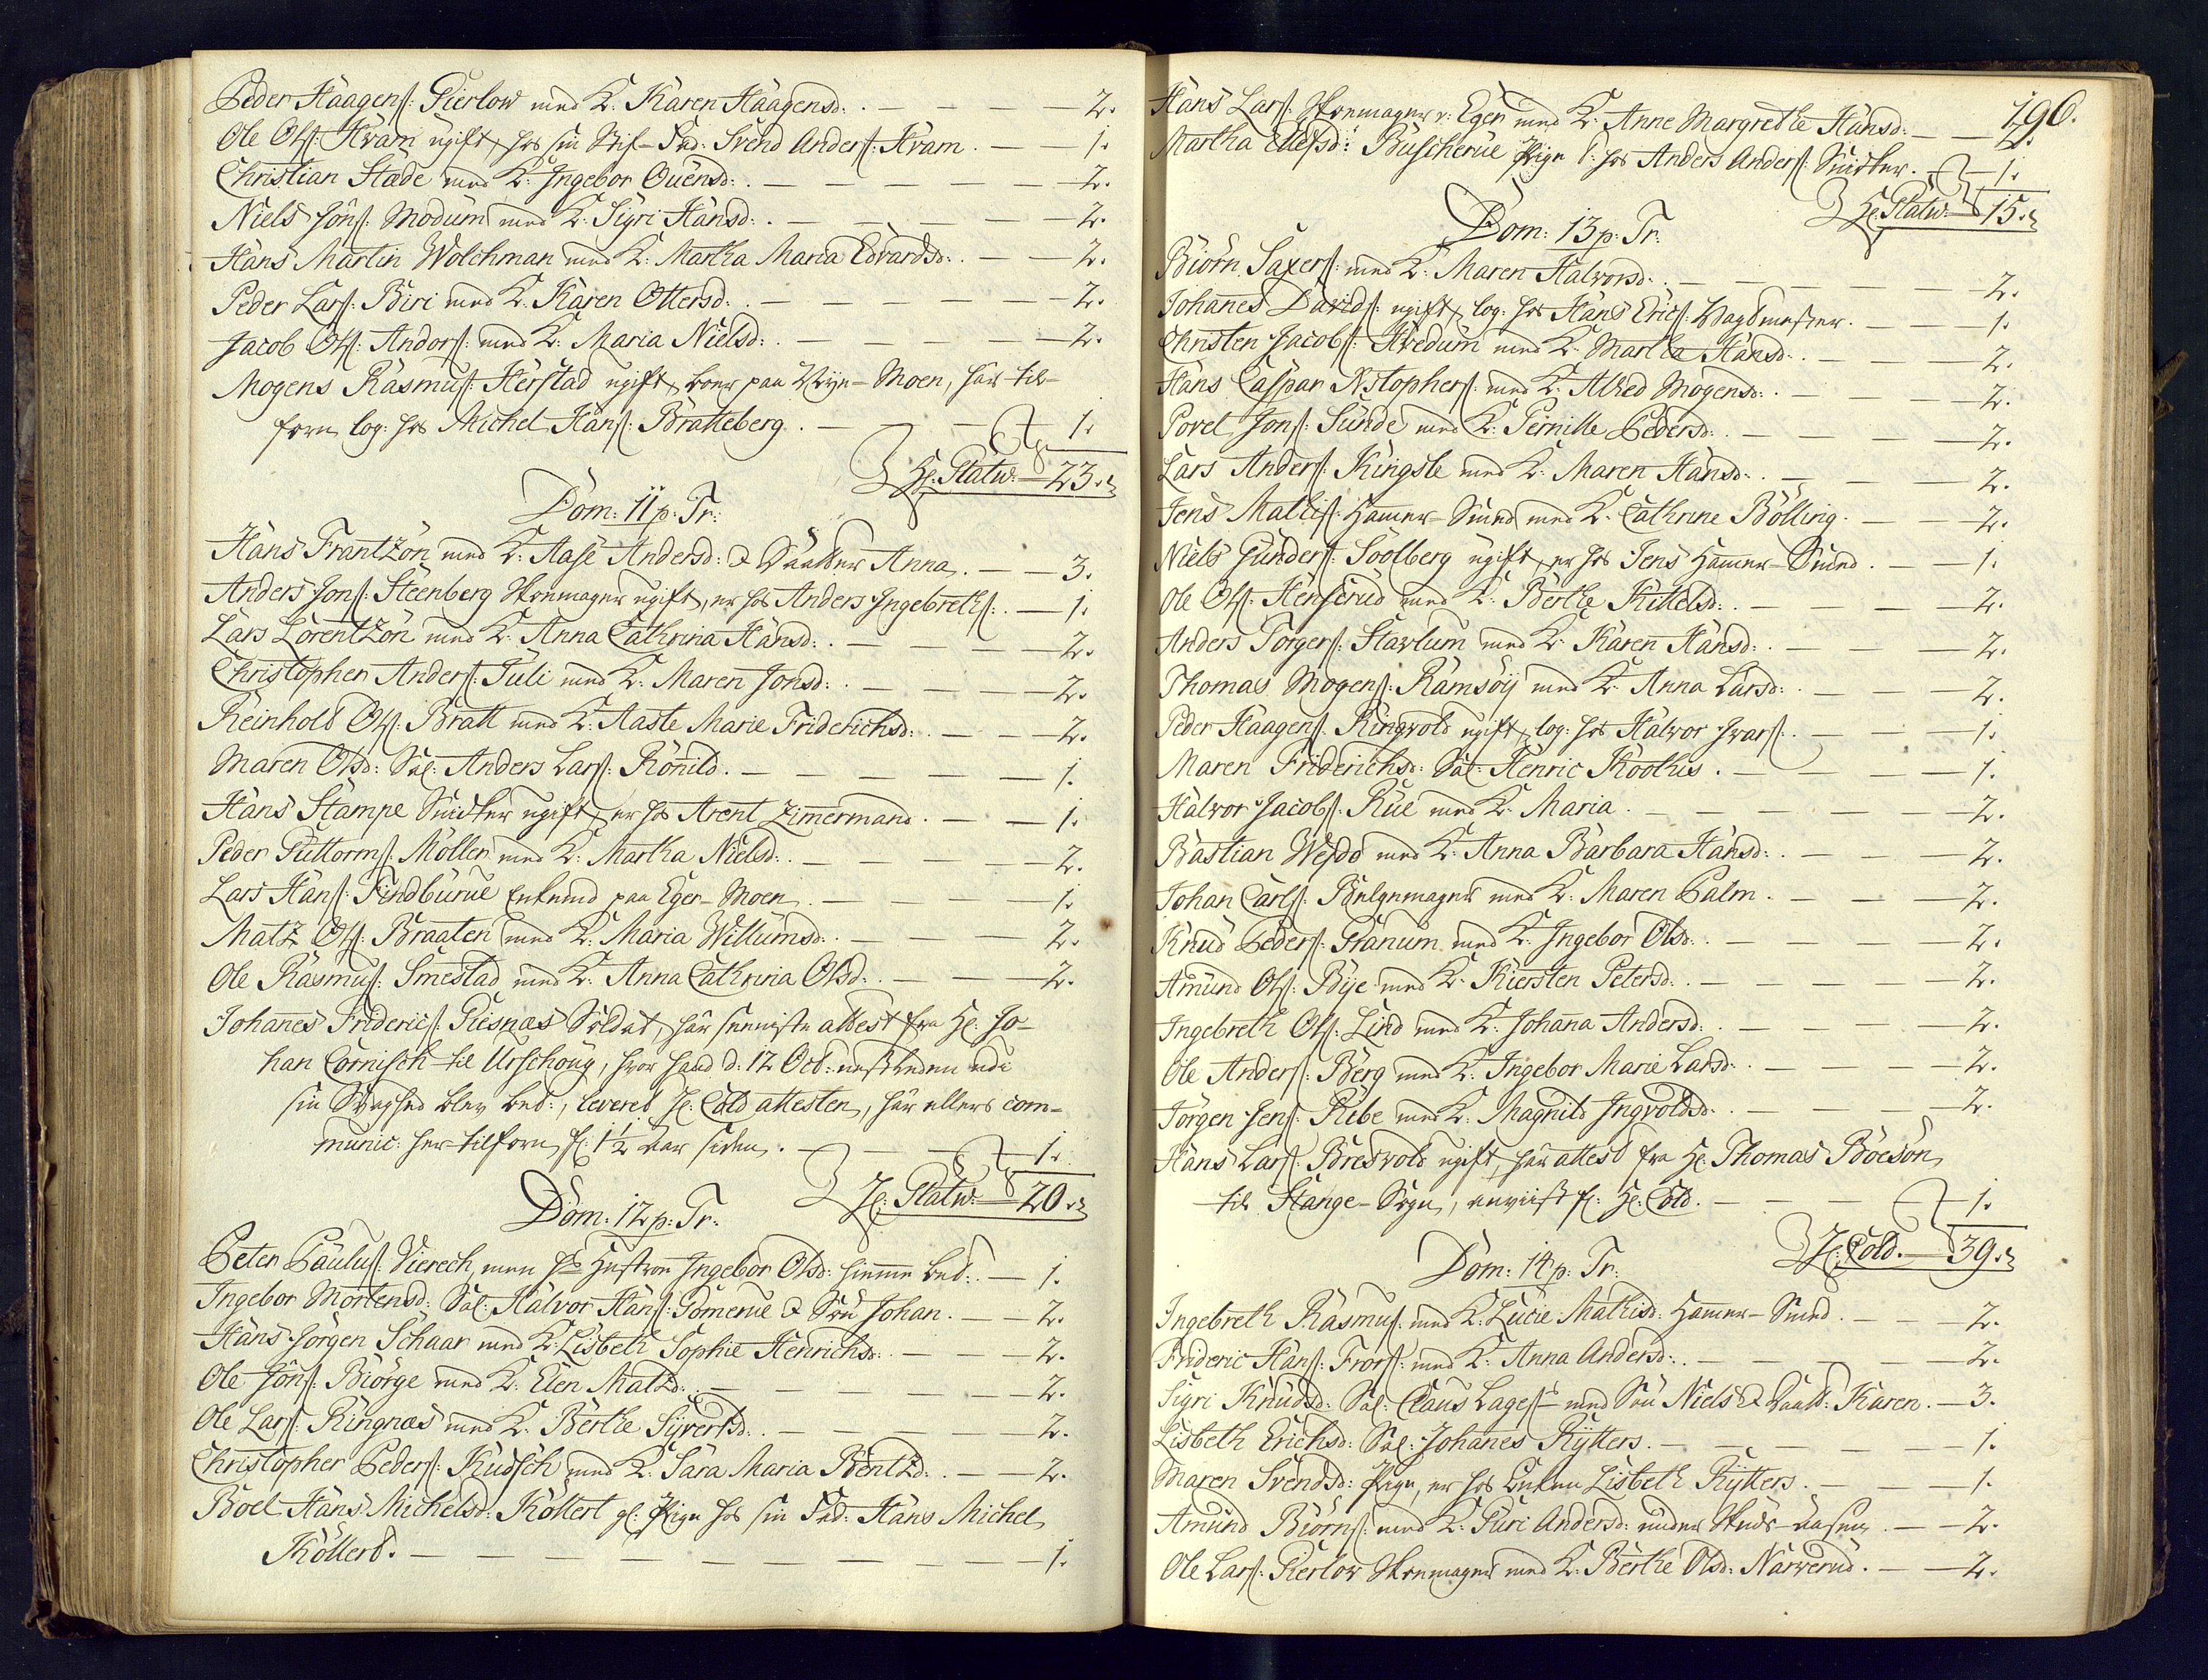 Peder Haagens: Gierlow med K: Karen Haagensd: . — 2.
Ole Ols: Hvam ugift, hos sin Stif-Fad: Svend Anders: Hvam . — 1.
Christian Stade med K: Ingebor Ouensd: . — 2.
Niels Jons: Modum med K: Sigri Hansd: . — 2.
Hans Martin Wolchman med K: Martha Maria Edvardsd: . — 2.
Peder Lars: Biri med K: Karen Ottersd: . — 2.
Jacob Ols: Andors: med K: Maria Nielsd: . — 2.
Mogens Rasmus: Herstad ugift, boer paa Wiin-Moen, har til-
forn log: hos Michel Hans: Bratteberg . — 1.
H: Platw: — 23.
Dom: 11 p: Tr:
Hans Frantzøn med K: Aase Andersd: & Daatter Anna . — 3.
Anders Jons: Steenberg Skomager ugift, er hos Anders Ingebreths: . — 1.
Lars Lorentzøn med K: Anna Cathrina Hansd: . — 2.
Christopher Anders: Juli med K: Maren Jonsd: . — 2.
Reinhold Ols: Bratt med K: Aaste Marie Friderichsd: . — 2.
Maren Olsd: Sal: Anders Lars: Rønild . — 1.
Hans Stampe Snidker ugift, er hos Arent Zimermand . — 1.
Peder Guttorms: Møller med K: Martha Nielsd: . — 2.
Lars Hans: Tindburue Enkemd paa Eger-Moen . — 1.
Matz Ols: Braaten med K: Maria Willumsd: . — 2.
Ole Rasmus: Smestad med K: Anna Cathrina Olsd: . — 2.
Johanes Frideric: Giesnæs Soldat, har seeniste attest fra H: Jo-
han Cornisch til Urschoug, hvor hand d: 12 Oct: nestleden udi
sin Svaghed blev bet:, leveret H: Cold attesten, har ellers com-
munic: her tilforn f: 1 1/2 aar siden . — 1.
H: Platw: — 20.
Dom: 12 p: Tr:
Peter Paulus: Vierech, men hs Hustroe Ingebor Olsd: hieme bet: . — 1.
Ingebor Mortensd: Sal: Halvor Hans: Gomerue & Søn Johan . — 2.
Hans Jørgen Schaar med K: Lisbeth Sophie Henrichsd: . — 2.
Ole Jons: Biørge med K: Elen Matzd: . — 2.
Ole Lars: Ringnæs med K: Berthe Sijvertsd: . — 2.
Christopher Peders: Kudsch med K: Sara Maria Bentzd: . — 2.
Boel Hans Michelsd: Køllert gl: Pige hos sin Fad: Hans Michel
Køllert . — 1.
190.
Hans Lars: Skomager v: Eger med K: Anne Margrethe Hansd: — 2.
Martha Elefsd: Buscherue Pige t: hos Anders Anders: Snidker . — 1.
H: Platw: — 15.
Dom: 13 p: Tr:
Biørn Saxers: med K: Maren Halvorsd: . — 2.
Johanes Davids: ugift, log: hos Hans Erics: Vagtmester . — 1.
Christen Jacobs: Hvedum med K: Martha Hansd: . — 2.
Hans Caspar Xstophers: med K: Alhed Mogensd: . — 2.
Povel Jons: Sunde med K: Pernille Pedersd: . — 2.
Lars Anders: Kingsle med K: Maren Hansd: . — 2.
Jens Mathis: Hamer-Smed med K: Cathrine Bølling . — 2.
Niels Gunders: Soolberg ugift, er hos Jens Hamer-Smed . — 1.
Ole Ols: Henserud med K: Berthe Kittelsd: . — 2.
Anders Torgers: Stavlum med K: Karen Hansd: . — 2.
Thomas Mogens: Ramsøij med K: Anna Larsd: . — 2.
Peder Haagens: Ringvold ugift, log: hos Halvor Ivars: . — 1.
Maren Friderichsd: Sal: Henric Koothis . — 1.
Halvor Jacobs: Rue med K: Maria . — 2.
Bastian Weydo med K: Anna Barbara Hansd: . — 2.
Johan Carls: Bælgemager med K: Maren Palm . — 2.
Knud Peders: Granum med K: Ingebor Olsd: . — 2.
Amund Ols: Bije med K: Kiersten Petersd: . — 2.
Ingebreth Ols: Lind med K: Johana Andersd: . — 2.
Ole Anders: Berg med K: Ingebor Marie Larsd: . — 2.
Jørgen Jens: Ribe med K: Magnild Ingvoldsd: . — 2.
Hans Lars: Bresvold ugift, har attest fra H: Thomas Boesøn
til Stange-Sogn, anviist f: H: Cold . — 1.
H: Cold . — 39.
Dom: 14 p: Tr:
Ingebreth Rasmus: med K: Lucie Mathisd: Hamer-Smed . — 2.
Frideric Hans: Frors: med K: Anna Andersd: . — 2.
Sigri Knudsd: Sal: Claus Lages: med Søn Niels & Daatt: Karen . — 3.
Lisbeth Erichsd: Sal: Johanes Rytters . — 1.
Maren Svendsd: Pige, er hos Enken Lisbeth Rytters . — 1.
Amund Biørns: med K: Guri Andersd: under Skuds-aasen . — 2.
Ole Lars: Gierlow Skomager med K: Berthe Olsd: Narverud . — 2.